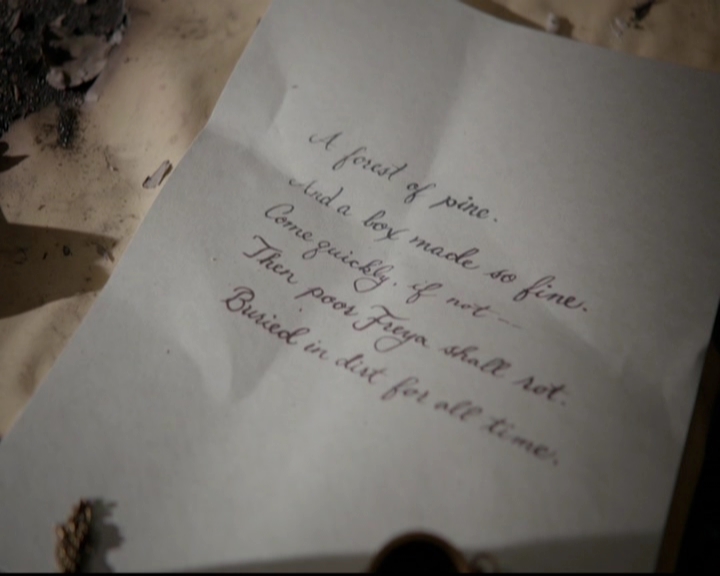 A forest of pine.
And a box made so fine.
Come quickly. if not --
Then poor Freya shall rot.
Buried in dirt for all time.